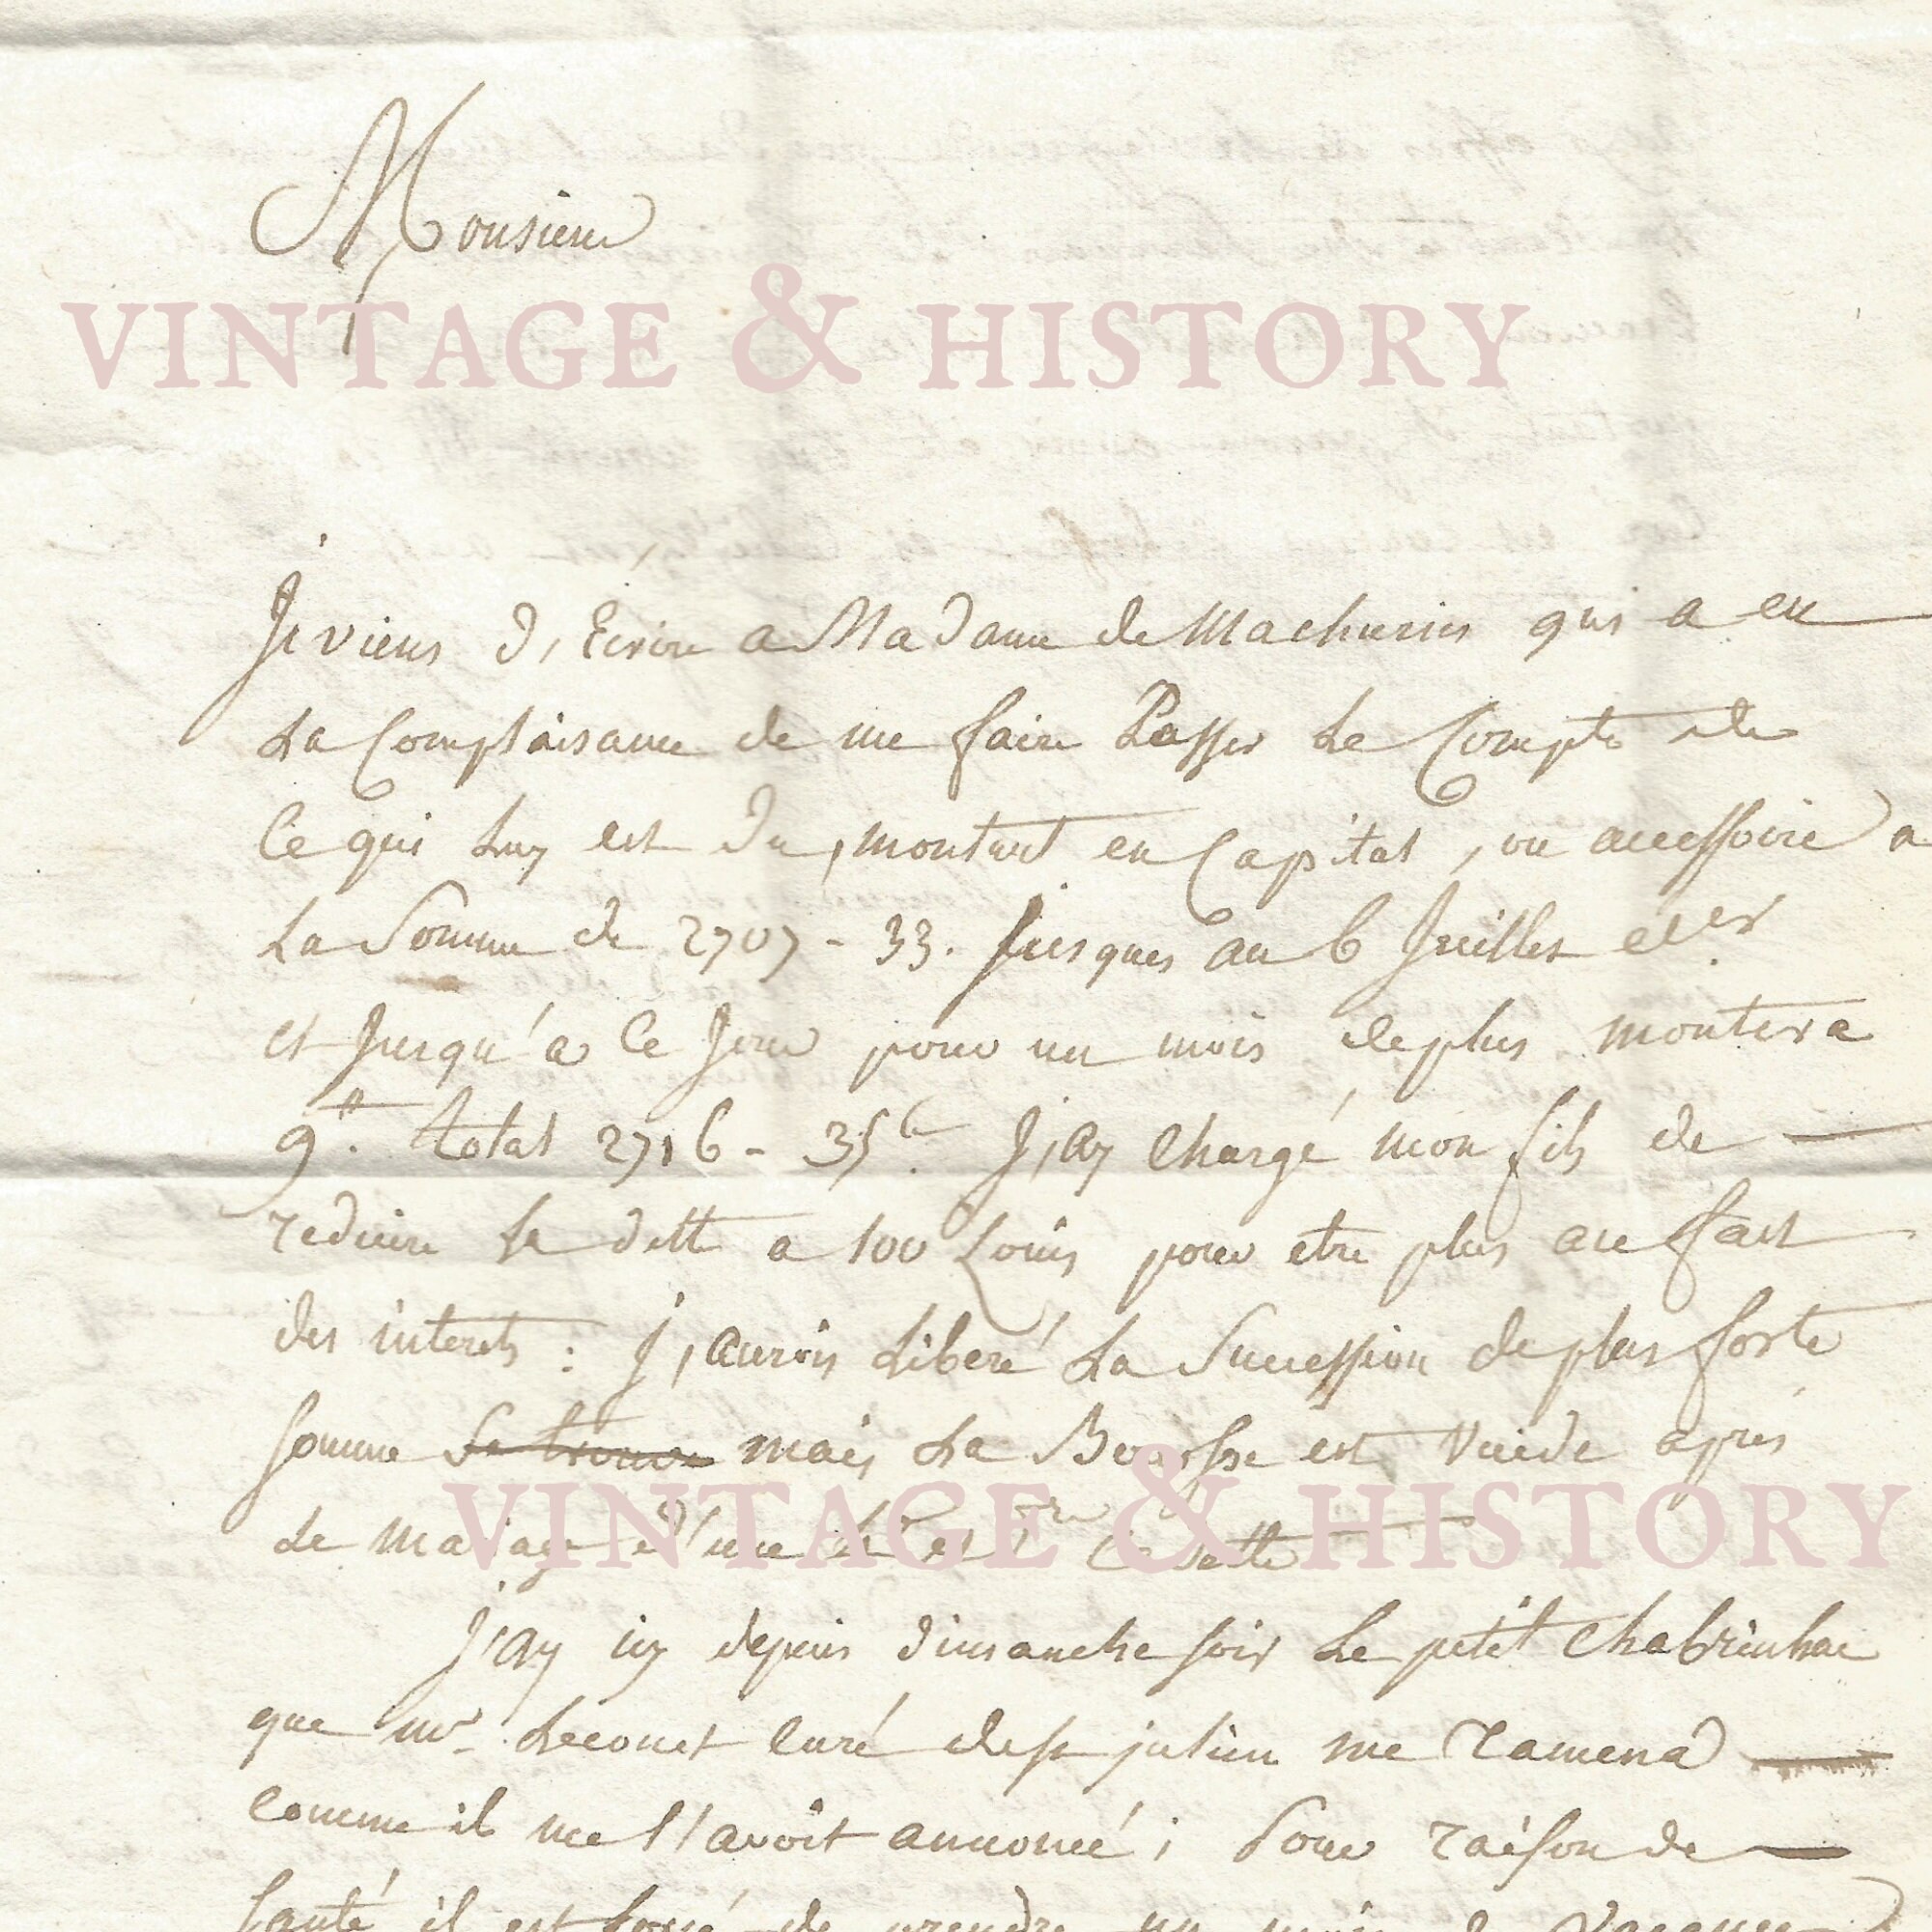 Monsieur
VINTAGE & HISTORY
Je viens d, Ecrire a Madame de Machurin qui a eu
La Complaisance de me faire Passer Le Compte de
Ce qui Luy est Du, montant en Capital, ou accessoire a
La Somme de 2707 - 33. Jusques au 6 Juillet der
et Jusqu'a Ce Jour pour un mois de plus montera
9tt. total 2716 - 35c. J,ay Chargé mon fils de
reduire la dette a 100 Louis pour etre plus au fait
des interets : J,aurois Liberé La Succession de plus forte
somme se trouve mais La Bourse est Vuide apres
le mariage d'une
VINTAGE & HISTORY
J'ay icy depuis dimanche soir Le petit Chabrinhac
que mr. Lecouet Curé de st julien me ramena
Comme il me l'avoit annoncé ; Pour raison de
santé il est forcé de prendre un mois de